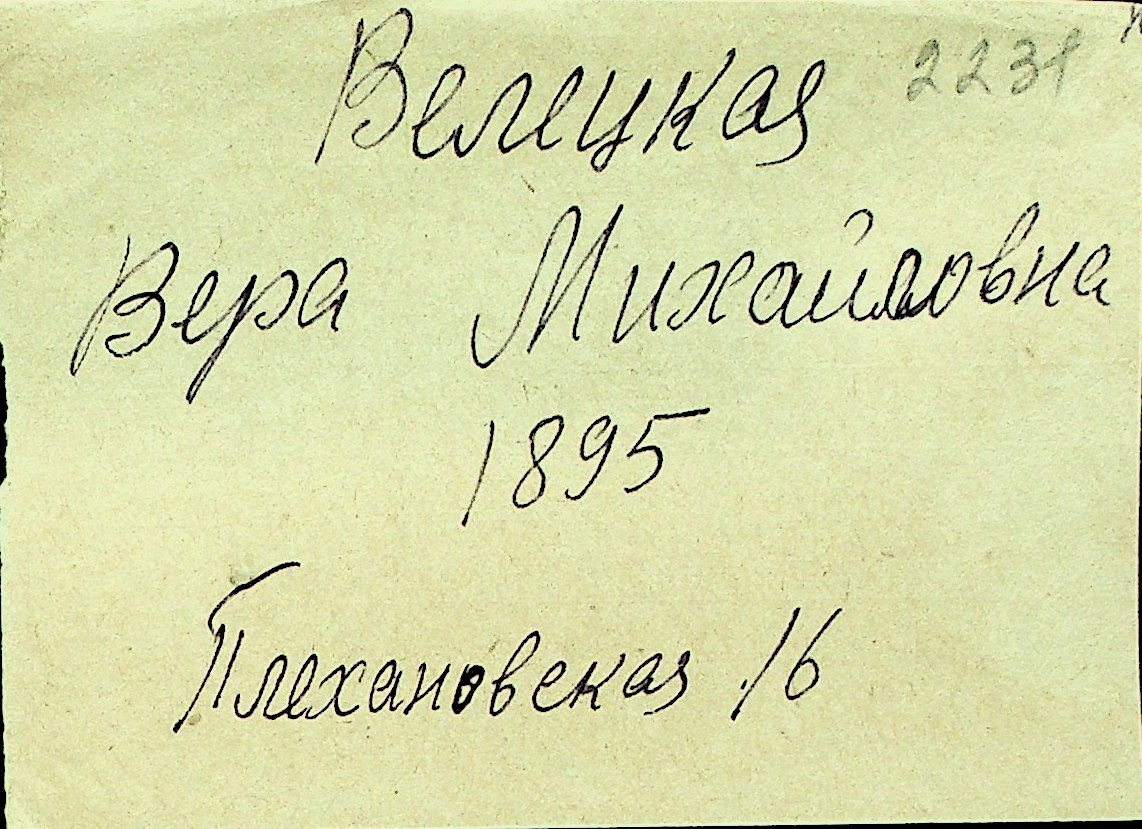 Велецкая 2231
Вера Михайловна
1895
Плехановская 16